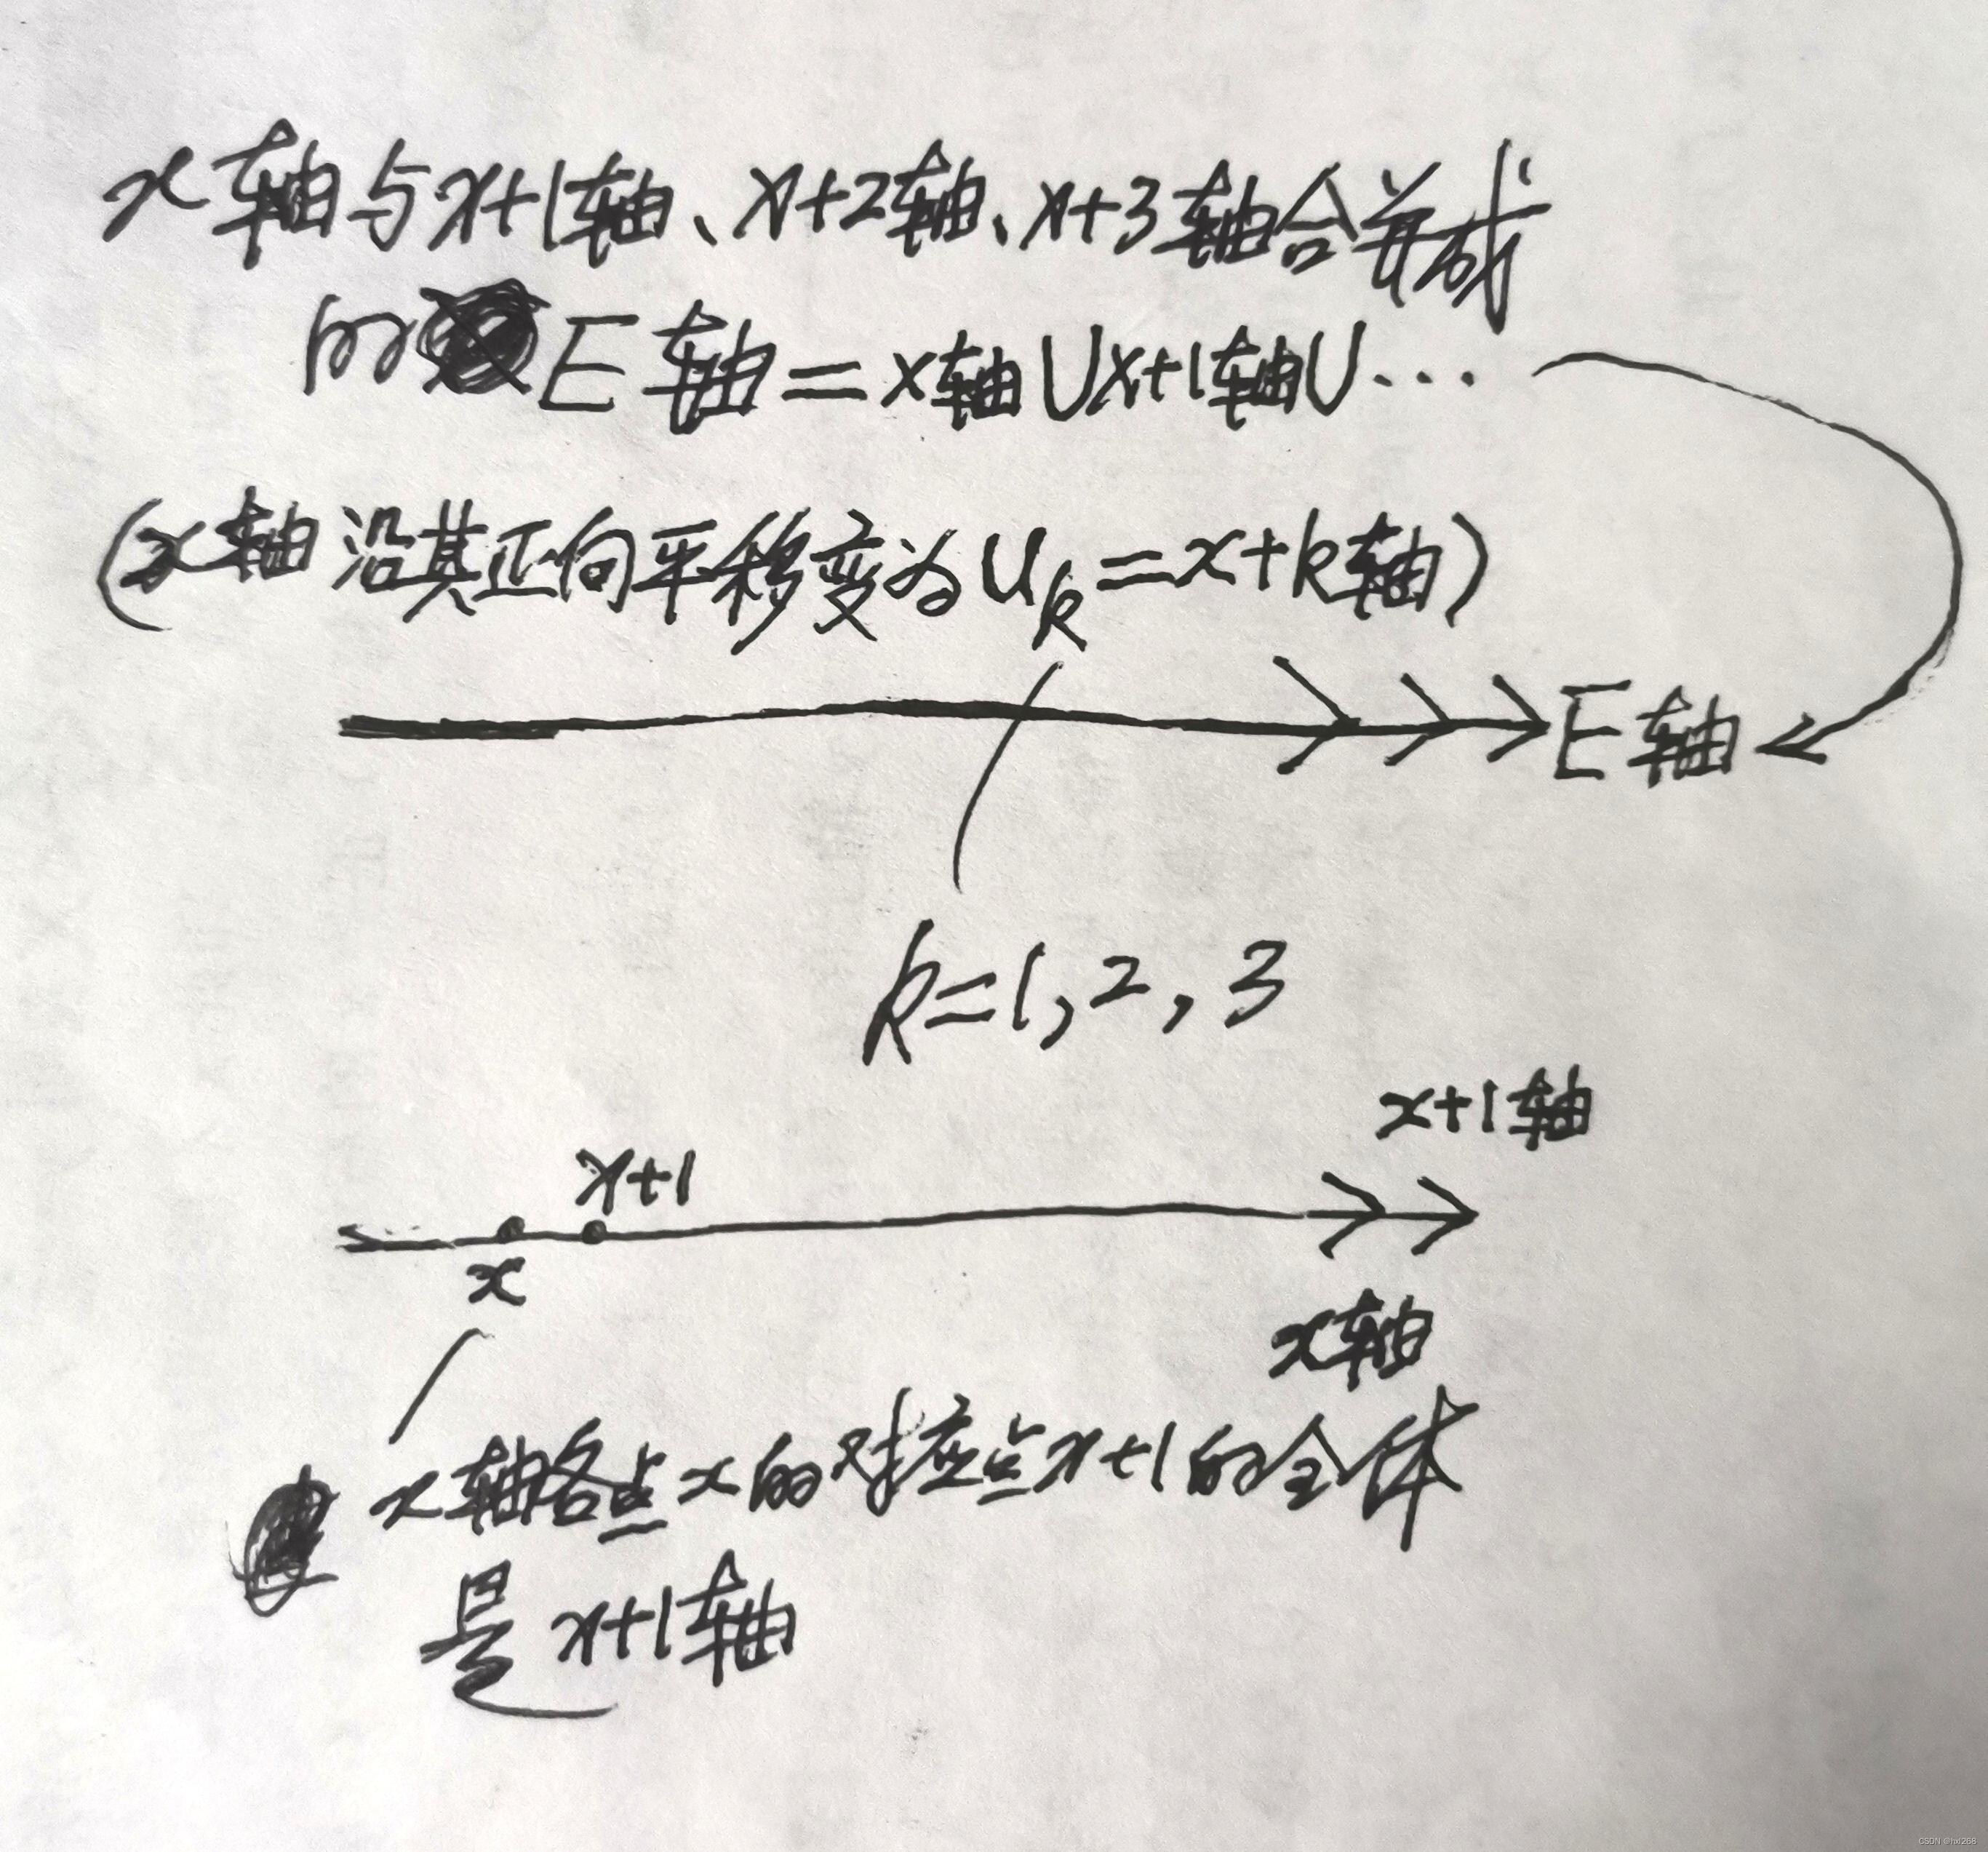 x轴与x+1轴、x+2轴、x+3轴合并成
的E轴=x轴Ux+1轴U···
(x轴沿其正向平移变为uk=x+k轴)
E轴
k=1,2,3
x+1轴
x+1
x
x轴
x轴各点x的对应点x+1的全体
是x+1轴
CSDN @hxl268